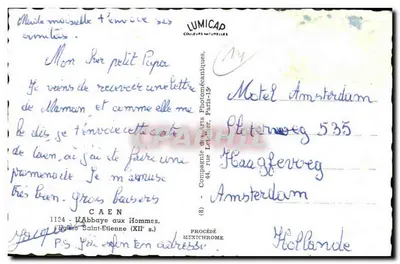 Mademoiselle t'envoie ses
amitiés.
Mon cher petit Papa
Je viens de recevoir une lettre
de Maman et comme elle me
le dis je t'envoie cette carte
de Caen, où j'ai de faire une
promenade Je m'amuse
très bien. Gros baisers
CAEN
1124 - L'Abbaye aux Hommes,
Eglise Saint-Etienne (XIIe s.)
P.S. J'ai ton adresse
LUMICAP
COULEURS NATURELLES
(8) - Compagnie des Arts Photomécaniques,
44, rue Letellier, Paris-15e
PROCÉDÉ
MIXICHROME
14
Motel Amsterdam
535
Haagseweg
Amsterdam
Hollande